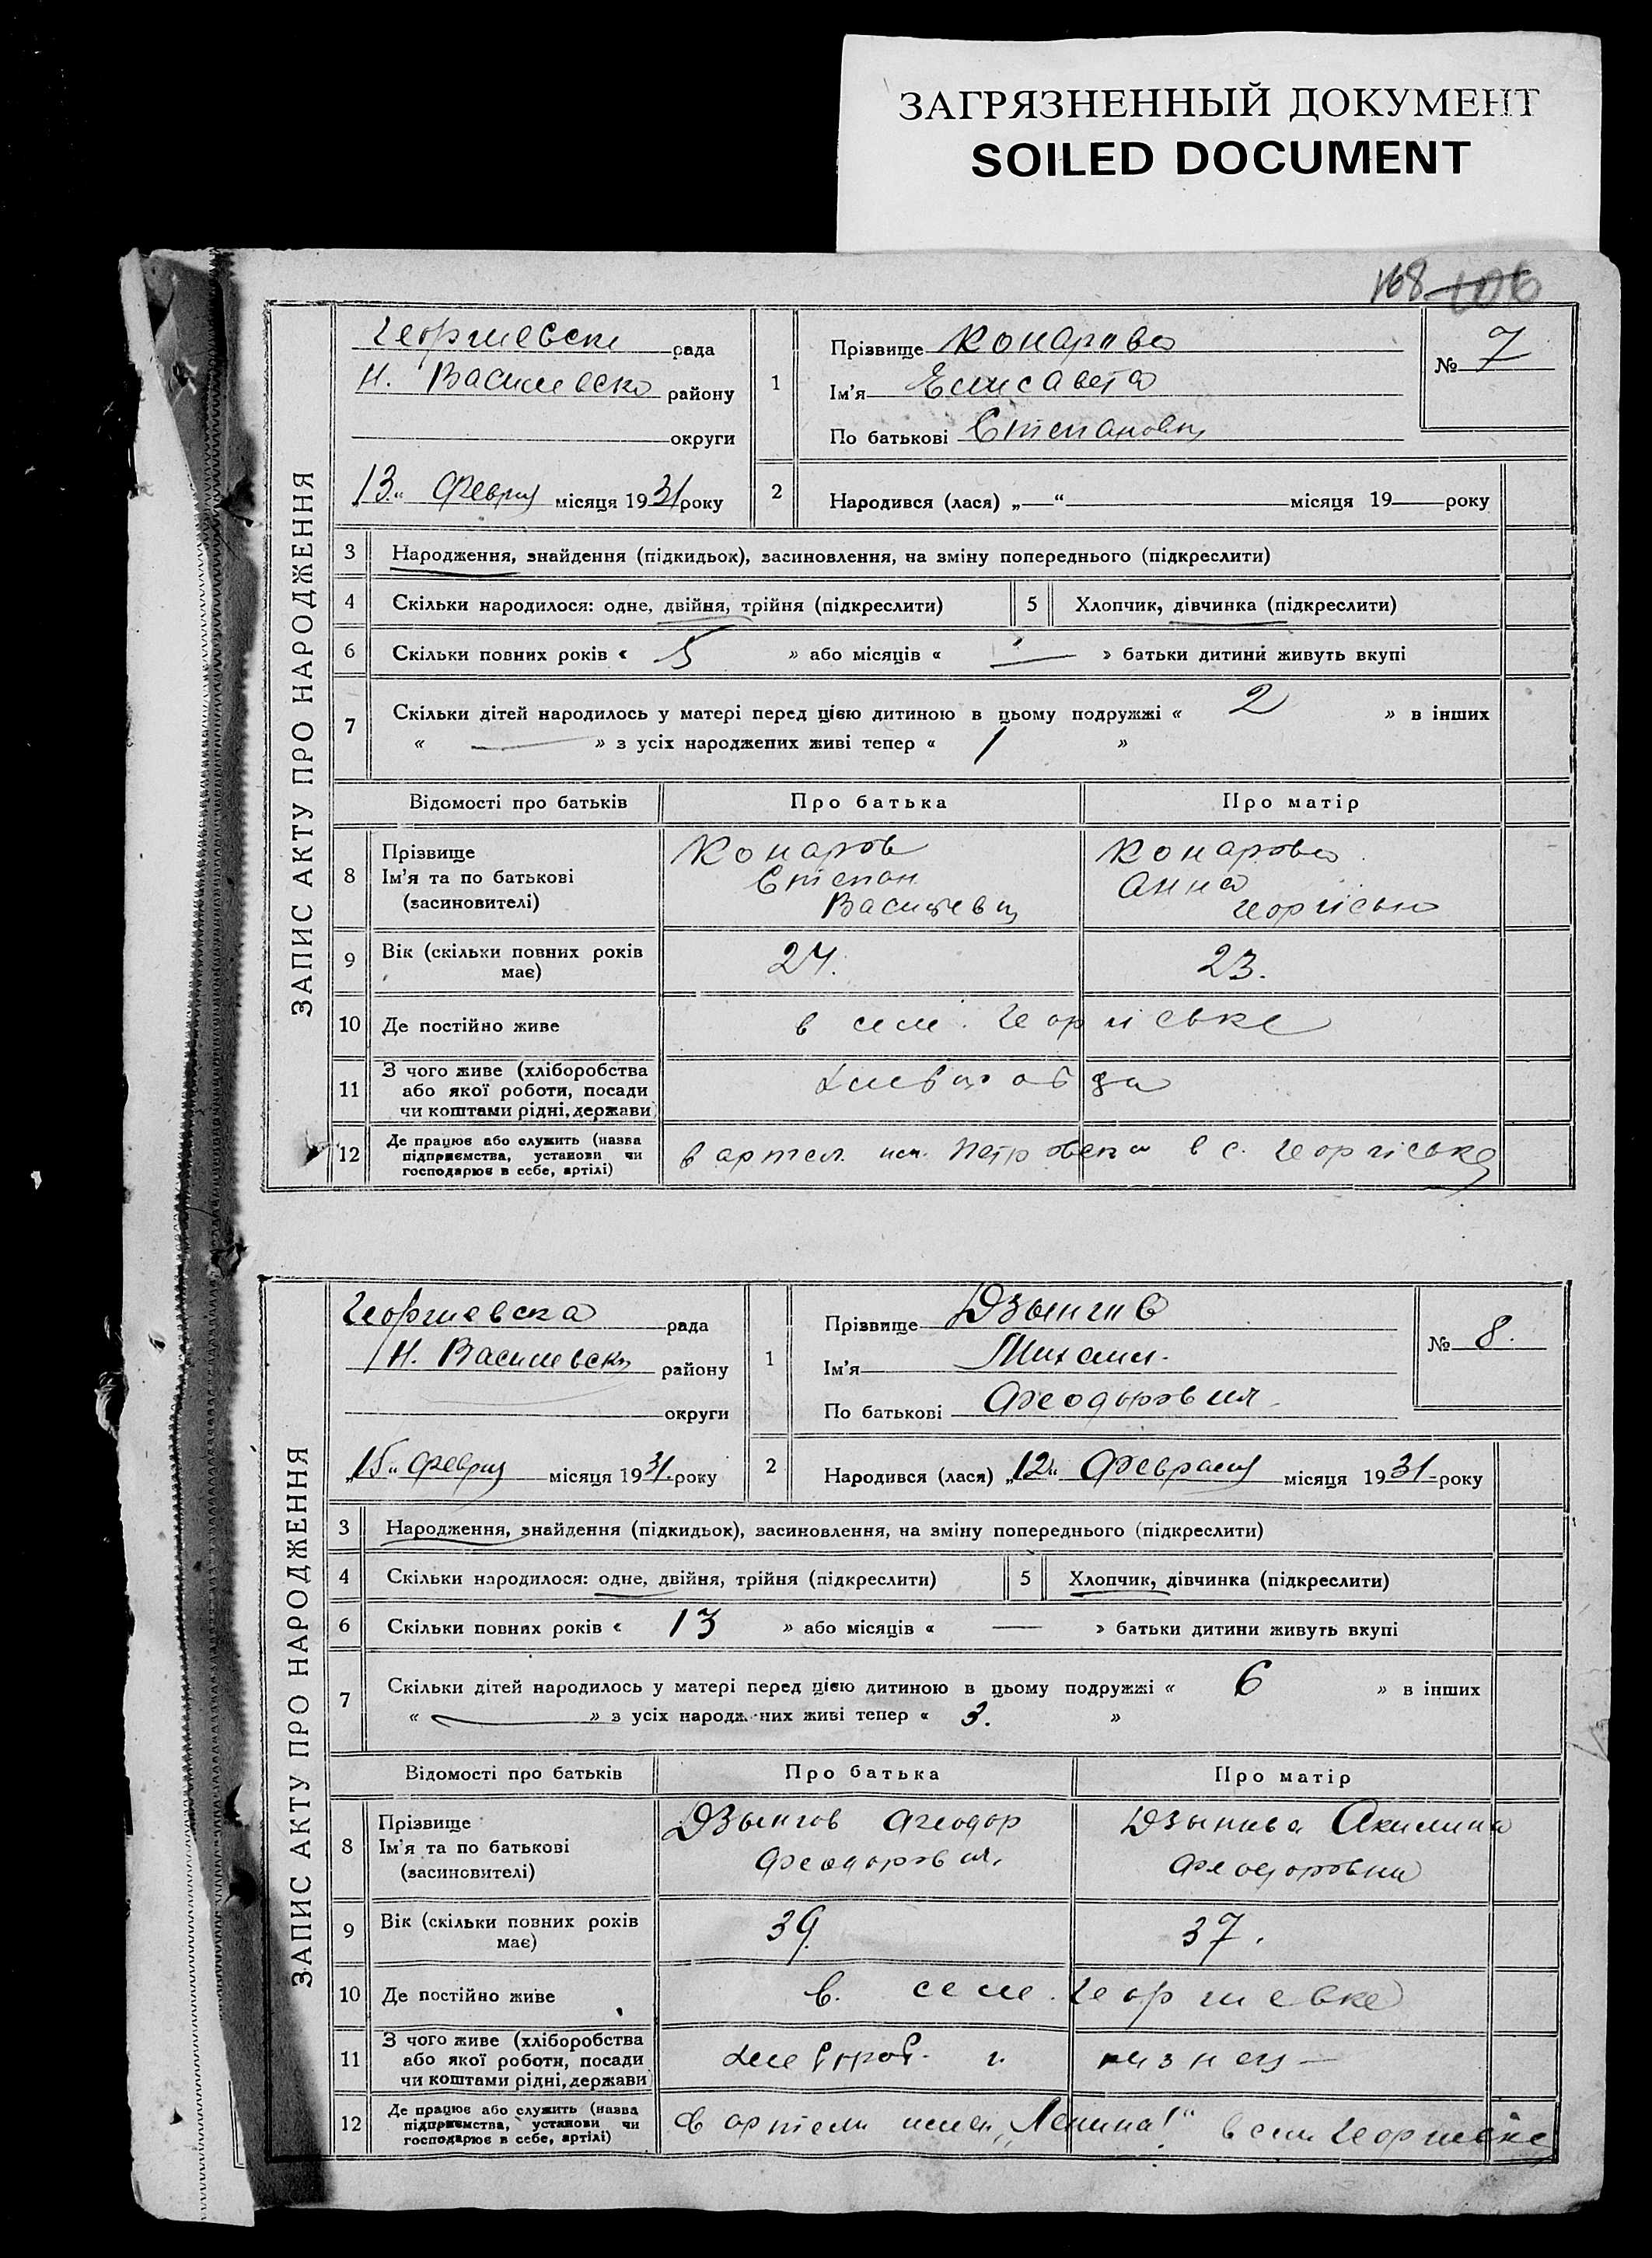 ЗАГРЯЗНЕННЫЙ ДОКУМЕНТ
SOILED DOCUMENT
168 106
ЗАПИС АКТУ ПРО НАРОДЖЕННЯ
Георгиевск рада
Н. Василевско району
округи
13 " Феврля місяця 1931 року
1
Прізвище Конарова
Ім'я Елисавета
По батькові Степановн
№ 7
2 Народився (лася) „—“ місяця 19— року
3 Народження, знайдення (підкидьок), засиновлення, на зміну попереднього (підкреслити)
4 Скільки народилося: одне, двійня, трійня (підкреслити) 5 Хлопчик, дівчинка (підкреслити)
6 Скільки повних років « 5 » або місяців « — » батьки дитини живуть вкупі
7 Скільки дітей народилось у матері перед цією дитиною в цьому подружжі « 2 » в інших
« — » з усіх народжених живі тепер « 1 »
Відомості про батьків Про батька Про матір
8 Прізвище Конаров Конарова
Ім'я та по батькові Степан Анна
(засиновителі) Василеви
9 Вік (скільки повних років має) 24. 23.
10 Де постійно живе в селе Георгіське
11 З чого живе (хліборобства
або якої роботи, посади
чи коштами рідні, держави)
12 Де працює або служить (назва
підприємства, установи чи
господарює в себе, артілі)
в артел. им. Петровска в с. Георгіське
ЗАПИС АКТУ ПРО НАРОДЖЕННЯ
Георгиевска рада
Н. Василевско району
округи
„15" Феврля місяця 1931. року
1
Прізвище Дзынгов
Ім'я Михаил.
По батькові Феодорович
№ 8.
2 Народився (лася) „12" Февраля місяця 1931 року
3 Народження, знайдення (підкидьок), засиновлення, на зміну попереднього (підкреслити)
4 Скільки народилося: одне, двійня, трійня (підкреслити) 5 Хлопчик, дівчинка (підкреслити)
6 Скільки повних років « 13 » або місяців « — » батьки дитини живуть вкупі
7 Скільки дітей народилось у матері перед цією дитиною в цьому подружжі « 6 » в інших
« — » з усіх народжених живі тепер « 3. »
Відомості про батьків Про батька Про матір
8 Прізвище Дзынгов Феодор Дзынгова Акилина
Ім'я та по батькові Феодорович Феодоровна
(засиновителі)
9 Вік (скільки повних років має) 39. 37.
10 Де постійно живе в. селе. Георгиевке
11 З чого живе (хліборобства
або якої роботи, посади
чи коштами рідні, держави)
12 Де працює або служить (назва
підприємства, установи чи
господарює в себе, артілі)
в артели имен „Ленина" в селе Георгиевке